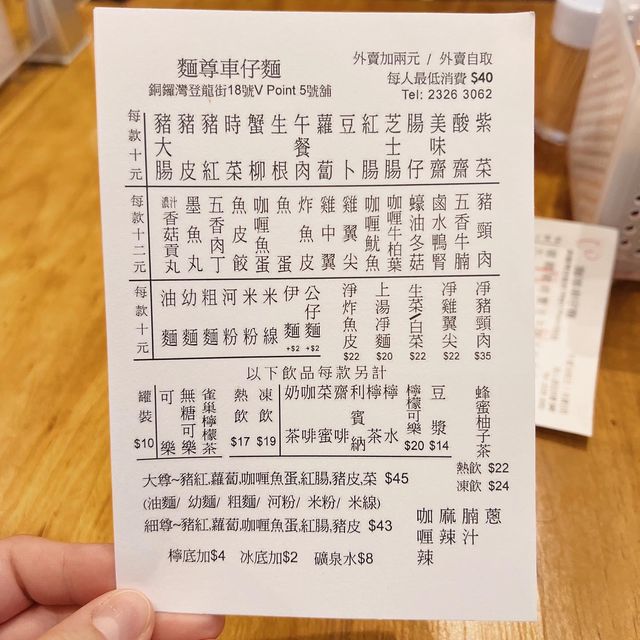 麵尊車仔麵
銅鑼灣登龍街18號V Point 5號舖
外賣加兩元 / 外賣自取
每人最低消費 $40
Tel: 2326 3062
每款十元
豬大腸
豬皮
豬紅
時菜
蟹柳
生根
午餐肉
蘿蔔
豆卜
紅腸
芝士腸
腸仔
美味齋
酸齋
紫菜
每款十二元
濃汁香菇貢丸
墨魚丸
五香肉丁
魚皮餃
咖喱魚蛋
魚蛋
炸魚皮
雞中翼
雞翼尖
咖喱魷魚
咖喱牛柏葉
蠔油冬菇
鹵水鴨腎
五香牛腩
豬頸肉
每款十元
油麵
幼麵
粗麵
河粉
米粉
米線
伊麵 +$2
公仔麵 +$2
淨炸魚皮 $22
上湯淨麵 $20
生菜/白菜 $22
淨雞翼尖 $22
淨豬頸肉 $35
以下飲品每款另計
罐裝 $10
可樂
無糖可樂
雀巢檸檬茶
熱飲 $17
凍飲 $19
奶茶
咖啡
菜蜜
齋啡
利賓納
檸茶
檸水
檸檬可樂 $20
豆漿 $14
蜂蜜柚子茶
熱飲 $22
凍飲 $24
大尊~豬紅,蘿蔔,咖喱魚蛋,紅腸,豬皮,菜 $45
(油麵/ 幼麵/ 粗麵/ 河粉/ 米粉/ 米線)
細尊~豬紅,蘿蔔,咖喱魚蛋,紅腸,豬皮 $43
檸底加$4 冰底加$2 礦泉水$8
咖喱辣
麻辣
腩汁
蔥